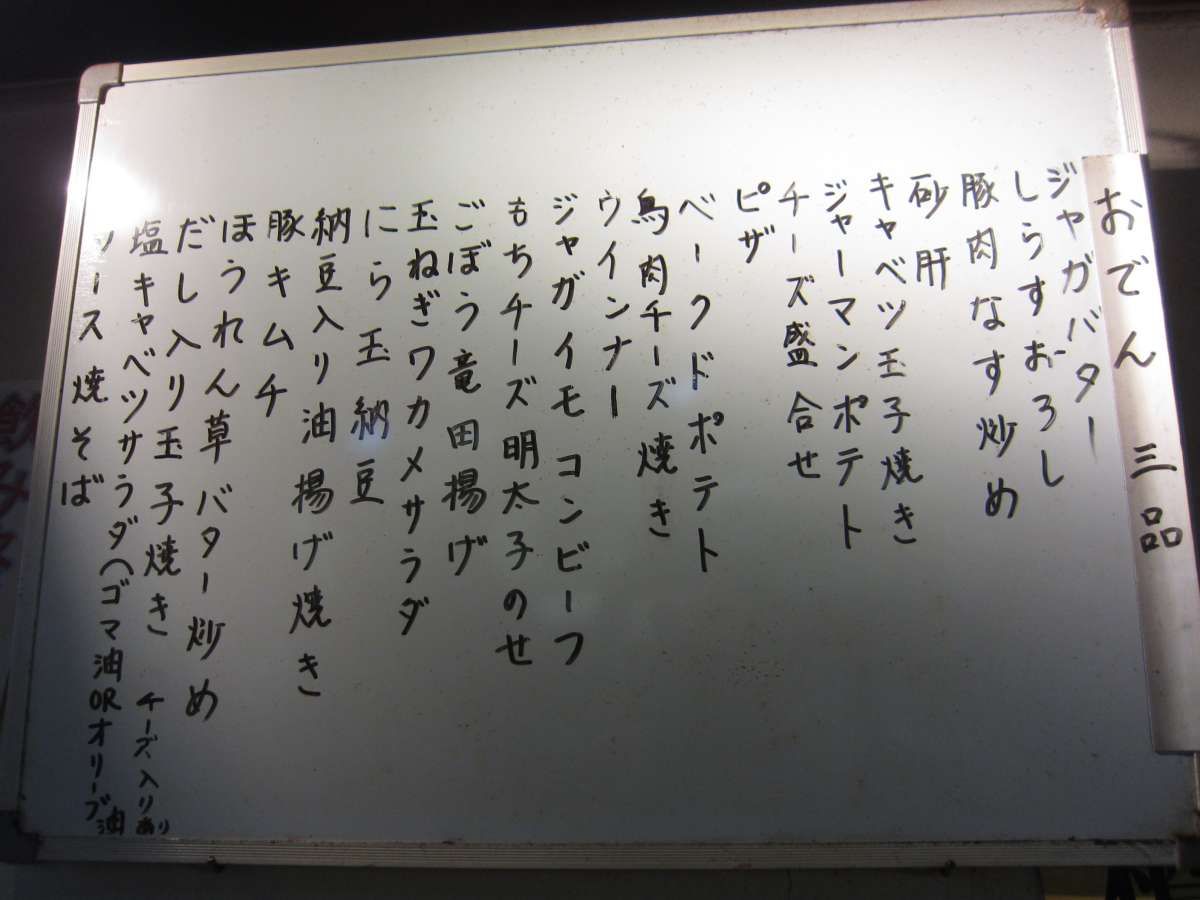 おでん 三品
ジャガバター
しらすおろし
豚肉なす炒め
砂肝
キャベツ玉子焼き
ジャーマンポテト
チーズ盛合せ
ピザ
ベークドポテト
鳥肉チーズ焼き
ウインナー
ジャガイモコンビーフ
もちチーズ明太子のせ
ごぼう竜田揚げ
玉ねぎワカメサラダ
にら玉納豆
納豆入り油揚げ焼き
豚キムチ
ほうれん草バター炒め
だし入り玉子焼き チーズ入りあり
塩キャベツサラダ(ゴマ油ORオリーブ油
ソース焼そば